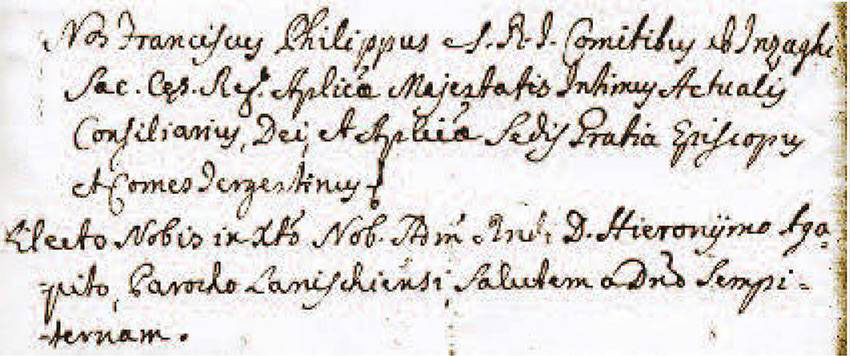 Nos Franciscus Philippus e S. R. I. Comitibus ab Inzaghi
Sac. Cęs. Regę. Aplicæ Majestatis Intimus Actualis
Consiliarius, Dei, et Aplicæ Sedis Gratia Episcopus
et Comes Tergestinus
Electo Nobis in Xto Nob. Adm̃ Rndo D. Hieronÿmo Aga-
pito, Parocho Lanischiensi, Salutem a Dnõ Sempi=
ternam.